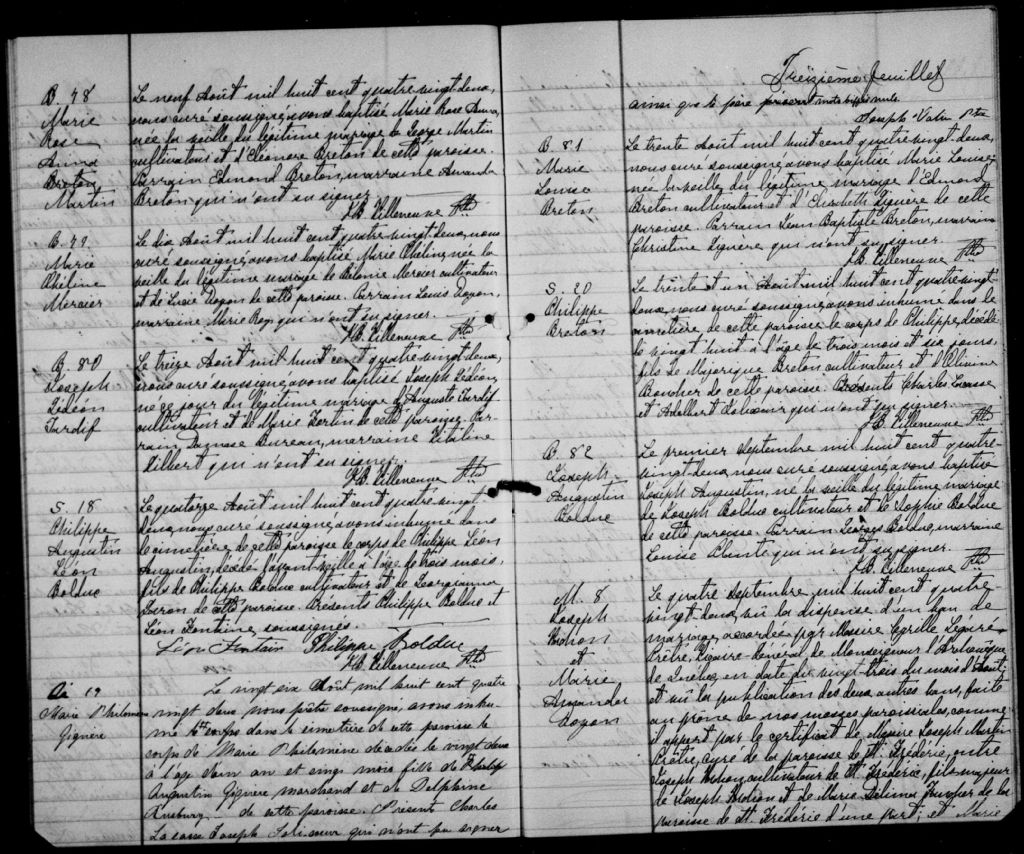 B. 78
Marie
Rose
Anna
Breton
Martin
Le neuf Août mil huit cent quatre-vingt-deux,
nous curé soussigné, avons baptisé Marie Rose Anna,
née la veille du légitime mariage de George Martin
cultivateur et d'Eléonore Breton de cette paroisse.
Parrain Edmond Breton, marraine Amanda
Breton qui n'ont su signer.
J.B. Villeneuve Ptre
B. 79
Marie
Obéline
Mercier
Le dix Août mil huit cent quatre-vingt-deux, nous
curé soussigné, avons baptisé Marie Obéline, née la
veille du légitime mariage de Mercier cultivateur
et de Lucie Doyon de cette paroisse. Parrain Louis Doyon,
marraine Marie Roy qui n'ont su signer.
J.B. Villeneuve Ptre
B. 80
Joseph
Gédéon
Tardif
Le treize Août mil huit cent quatre-vingt-deux,
nous curé soussigné, avons baptisé Joseph Gédéon,
né ce jour du légitime mariage d'Auguste Tardif
cultivateur et de Marie Fortin de cette paroisse. Par-
rain Damase Bureau, marraine Vitaline
Gilbert qui n'ont su signer.
J.B. Villeneuve Ptre
S. 18
Philippe
Augustin
Léon
Bolduc
Le quatorze Août mil huit cent quatre-vingt
deux, nous curé soussigné, avons inhumé dans
le cimetière de cette paroisse le corps de Philippe Léon
Augustin, décédé l'avant-veille à l'âge de trois mois,
fils de Philippe Bolduc cultivateur et de Georgianna
de cette paroisse. Présents Philippe Bolduc et
Léon Fontaine, soussignés.
Léon Fontain Philippe Bolduc
J.B. Villeneuve Ptre
19
Marie Philomène
Giguère
Le vingt six Août mil huit cent quatre
vingt deux nous prêtre soussigné, avons inhu-
mé le corps dans le cimetière de cette paroisse le
corps de Marie Philomène décédée le vingt deux
à l'âge d'un an et cinq mois fille de Philippe
Augustin Giguère marchand et de Delphine
de cette paroisse. Présents Charles
Lacasse Joseph qui n'ont pu signer
Treizième feuillet
ainsi que le père présent mots biffés nuls.
Joseph Ptre
B. 81
Marie
Louise
Breton
Le trente Août mil huit cent quatre-vingt-deux,
nous curé soussigné, avons baptisé Marie Louise,
née la veille du légitime mariage d'Edmond
Breton cultivateur et d'Elisabeth Giguère de cette
paroisse. Parrain Jean Baptiste Breton, marraine
Christine Giguère qui n'ont su signer.
J.B. Villeneuve Ptre
S. 20
Philippe
Breton
Le trente et un Août mil huit cent quatre-vingt-
deux, nous curé soussigné, avons inhumé dans le
cimetière de cette paroisse le corps de Philippe, décédé
le vingt huit à l'âge de trois mois et six jours,
fils de Majorique Breton cultivateur et d'Olivine
Boucher de cette paroisse. Présents Charles Lacasse
et Adalbert qui n'ont su signer.
J.B. Villeneuve Ptre
B. 82
Joseph
Augustin
Bolduc
Le premier Septembre mil huit cent quatre-
vingt-deux, nous curé soussigné, avons baptisé
Joseph Augustin, né la veille du légitime mariage
de Joseph Bolduc cultivateur et de Sophie Bolduc
de cette paroisse. Parrain Georges Bolduc, marraine
Louise qui n'ont su signer.
J.B. Villeneuve Ptre
M. 8
Joseph
et
Marie
Amanda
Doyon
Le quatre Septembre, mil huit cent quatre-
vingt-deux, vû la dispense d'un ban de
mariage accordée par Messire Cyrille Légaré,
Prêtre, Vicaire-Général de Monseigneur l'Archevêque
de Québec en date du vingt-trois du mois d'Août
et vû la publication des deux autres bans, faite
au prône de nos messes paroissiales, comme
il appert par le certificat de Messire Joseph Martin
Prêtre, curé de la paroisse de St. Frédéric, entre
Joseph cultivateur de St. Frédéric, fils majeur
de Joseph et de Marie Délima de la
paroisse de St. Frédéric d'une part; et Marie